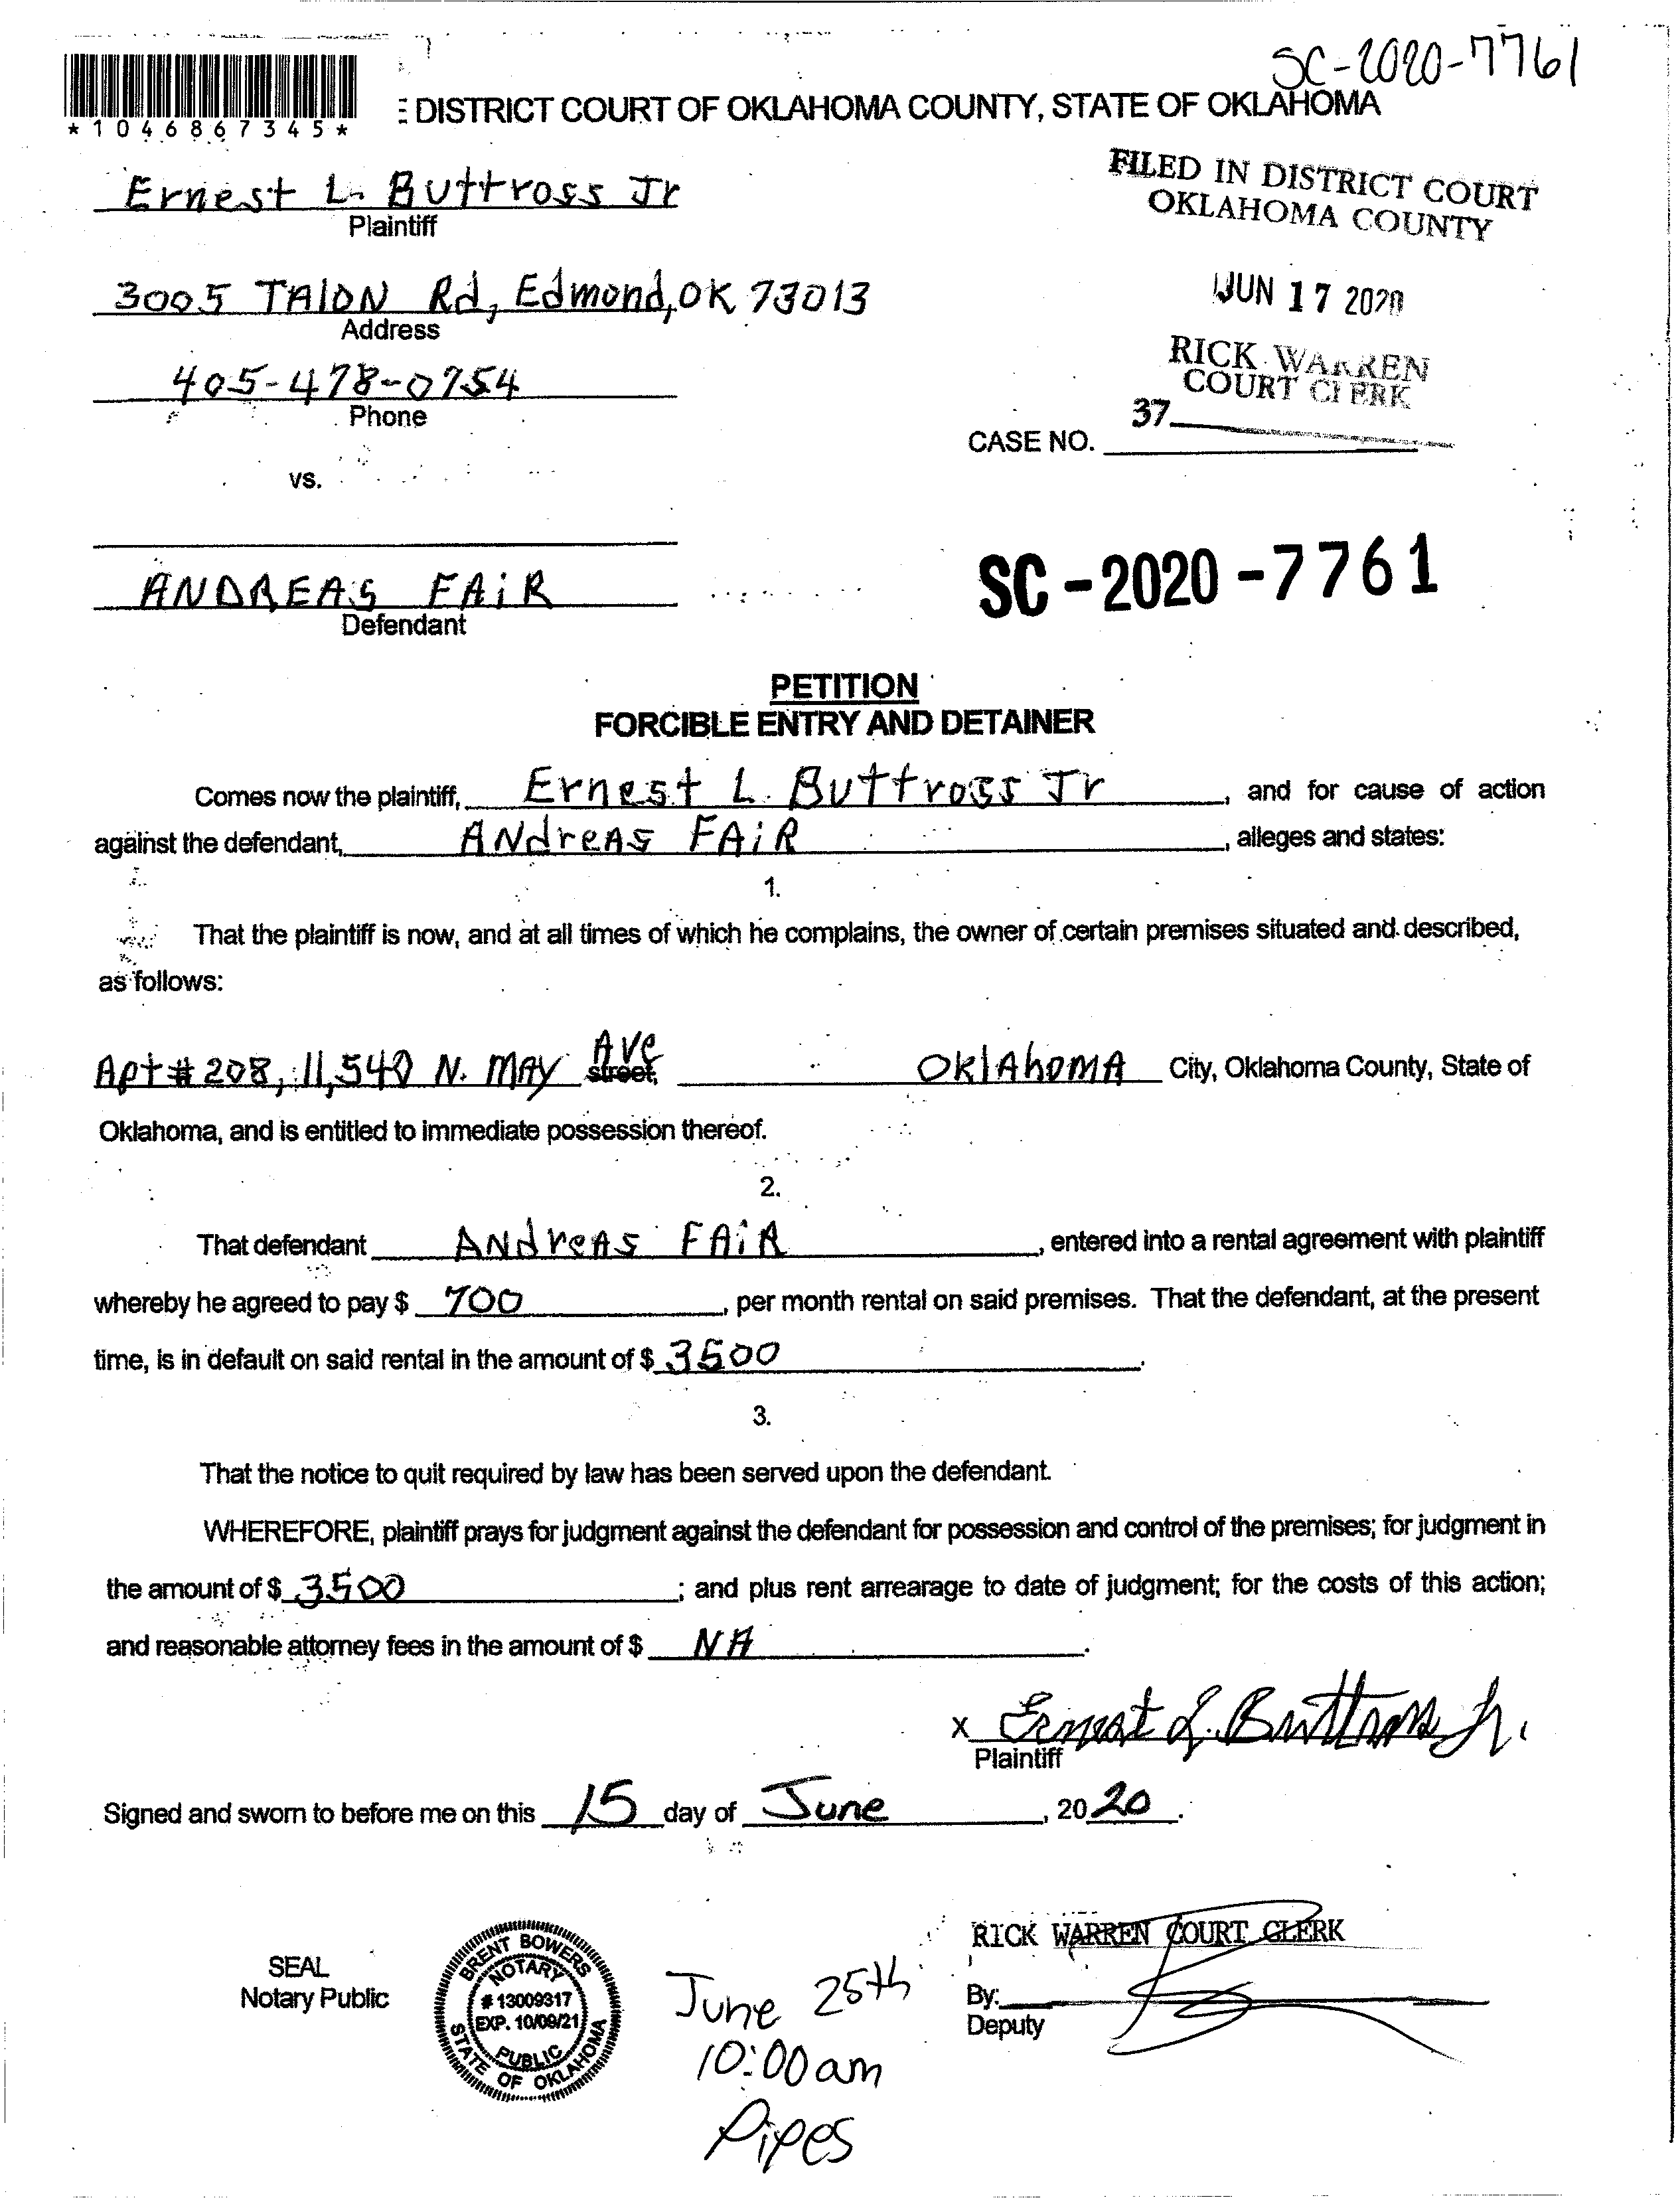 SC-2020-7761
*1046867345*
DISTRICT COURT OF OKLAHOMA COUNTY, STATE OF OKLAHOMA
FILED IN DISTRICT COURT
OKLAHOMA COUNTY
Ernest L. Buttross Jr
Plaintiff
3005 TAlON Rd, Edmond, OK 73013
Address
JUN 17 2020
RICK WARREN
COURT CLERK
405-478-0754
Phone
37
CASE NO.
vs.
ANDREAS FAiR
Defendant
SC-2020-7761
PETITION
FORCIBLE ENTRY AND DETAINER
Comes now the plaintiff, Ernest L. Buttross Jr, and for cause of action
against the defendant, ANdreAs FAiR, alleges and states:
1.
That the plaintiff is now, and at all times of which he complains, the owner of certain premises situated and described,
as follows:
Apt # 208, 11,540 N. MAY Ave street, OklAhoMA City, Oklahoma County, State of
Oklahoma, and is entitled to immediate possession thereof.
2.
That defendant ANdreAs FAiR, entered into a rental agreement with plaintiff
whereby he agreed to pay $ 700, per month rental on said premises. That the defendant, at the present
time, is in default on said rental in the amount of $ 3500.
3.
That the notice to quit required by law has been served upon the defendant.
WHEREFORE, plaintiff prays for judgment against the defendant for possession and control of the premises; for judgment in
the amount of $ 3500; and plus rent arrearage to date of judgment; for the costs of this action;
and reasonable attorney fees in the amount of $ NA.
x Ernest L. Buttross Jr.
Plaintiff
Signed and sworn to before me on this 15 day of June, 2020.
SEAL
Notary Public
BRENT BOWERS
NOTARY
# 13009317
EXP. 10/09/21
PUBLIC
STATE OF OKLAHOMA
June 25th
10:00 am
Pipes
RICK WARREN COURT CLERK
By:
Deputy